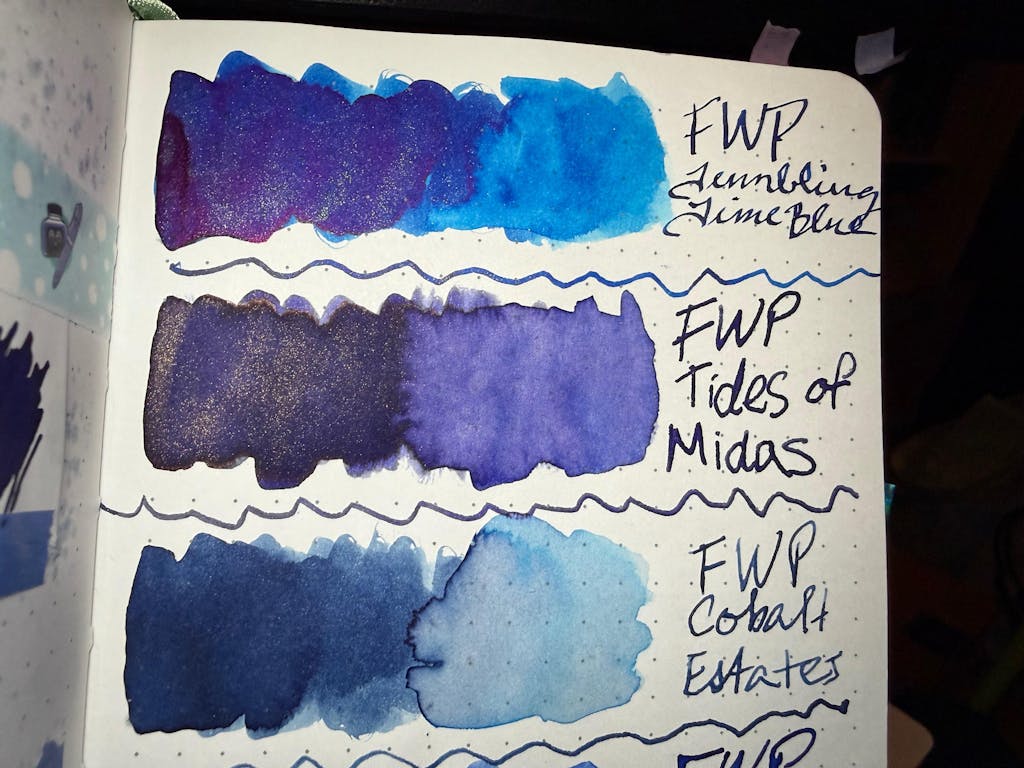 FWP
Tumbling
Time Blue
FWP
Tides of
Midas
FWP
Cobalt
Estates
FWP